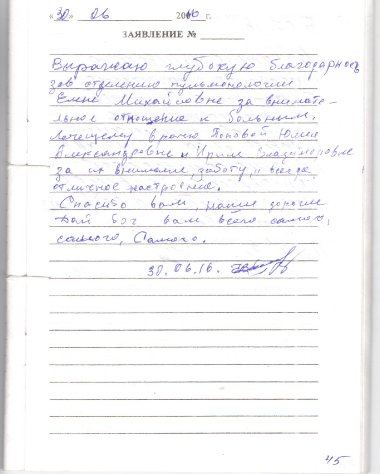 «30» 06 2016 г.
ЗАЯВЛЕНИЕ № ______
Выражаю глубокую благодарность
зав отделению пульмонологии
Елене Михайловне за внимате-
льное отношение к больным.
Лечащему врачу Поповой Юлии
Александровне и Ирине Владимировне
за их внимание, заботу, и всегда
отличное настроение.
Спасибо вам, наши дорогие
Дай бог вам всего самого,
самого, Самого.
30.06.16.
45